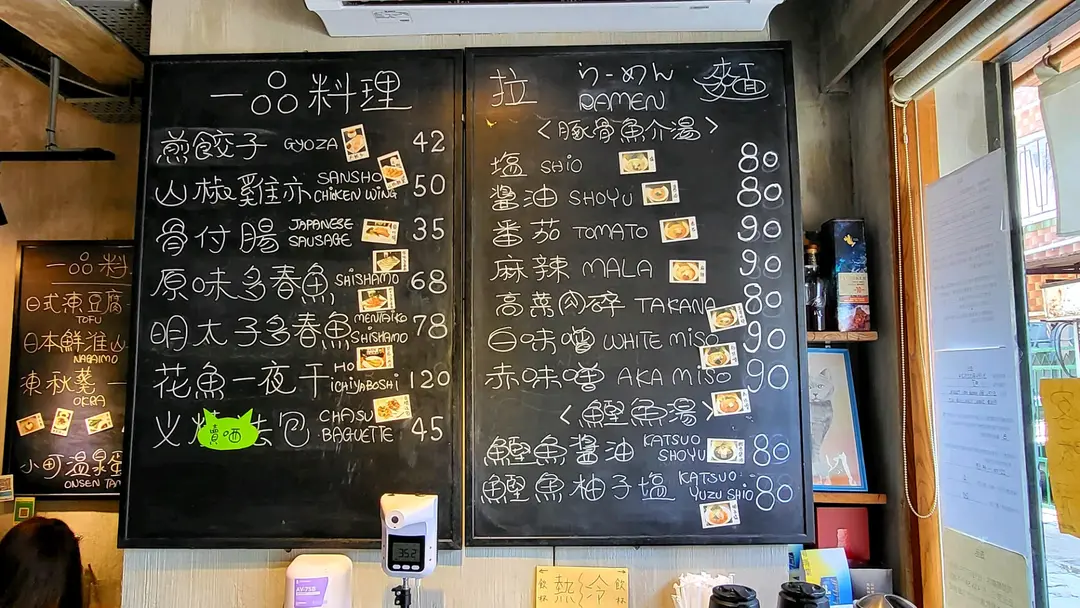 一品料理
煎餃子 GYOZA 42
山椒雞亦 SANSHO CHICKEN WING 50
骨付腸 JAPANESE SAUSAGE 35
原味多春魚 SHISHAMO 68
明太子多春魚 MENTAIKO SHISHAMO 78
花魚一夜干 HO ICHIYABOSHI 120
火 賣晒 法包 CHASU BAGUETTE 45
拉 らーめん 麵
RAMEN
<豚骨魚介湯>
塩 SHIO 80
醬油 SHOYU 80
番茄 TOMATO 90
麻辣 MALA 90
高菜肉碎 TAKANA 80
白味噌 WHITE MISO 90
赤味噌 AKA MISO 90
<鰹魚湯>
鰹魚醬油 KATSUO SHOYU 80
鰹魚柚子塩 KATSUO YUZU SHIO 80
一品料
日式凍豆腐
TOFU
日本鮮淮山
NAGAIMO
東秋葵
OKRA
小町溫泉蛋
ONSEN TAM
352
AV-750
飲杯 熱 冷 飲杯